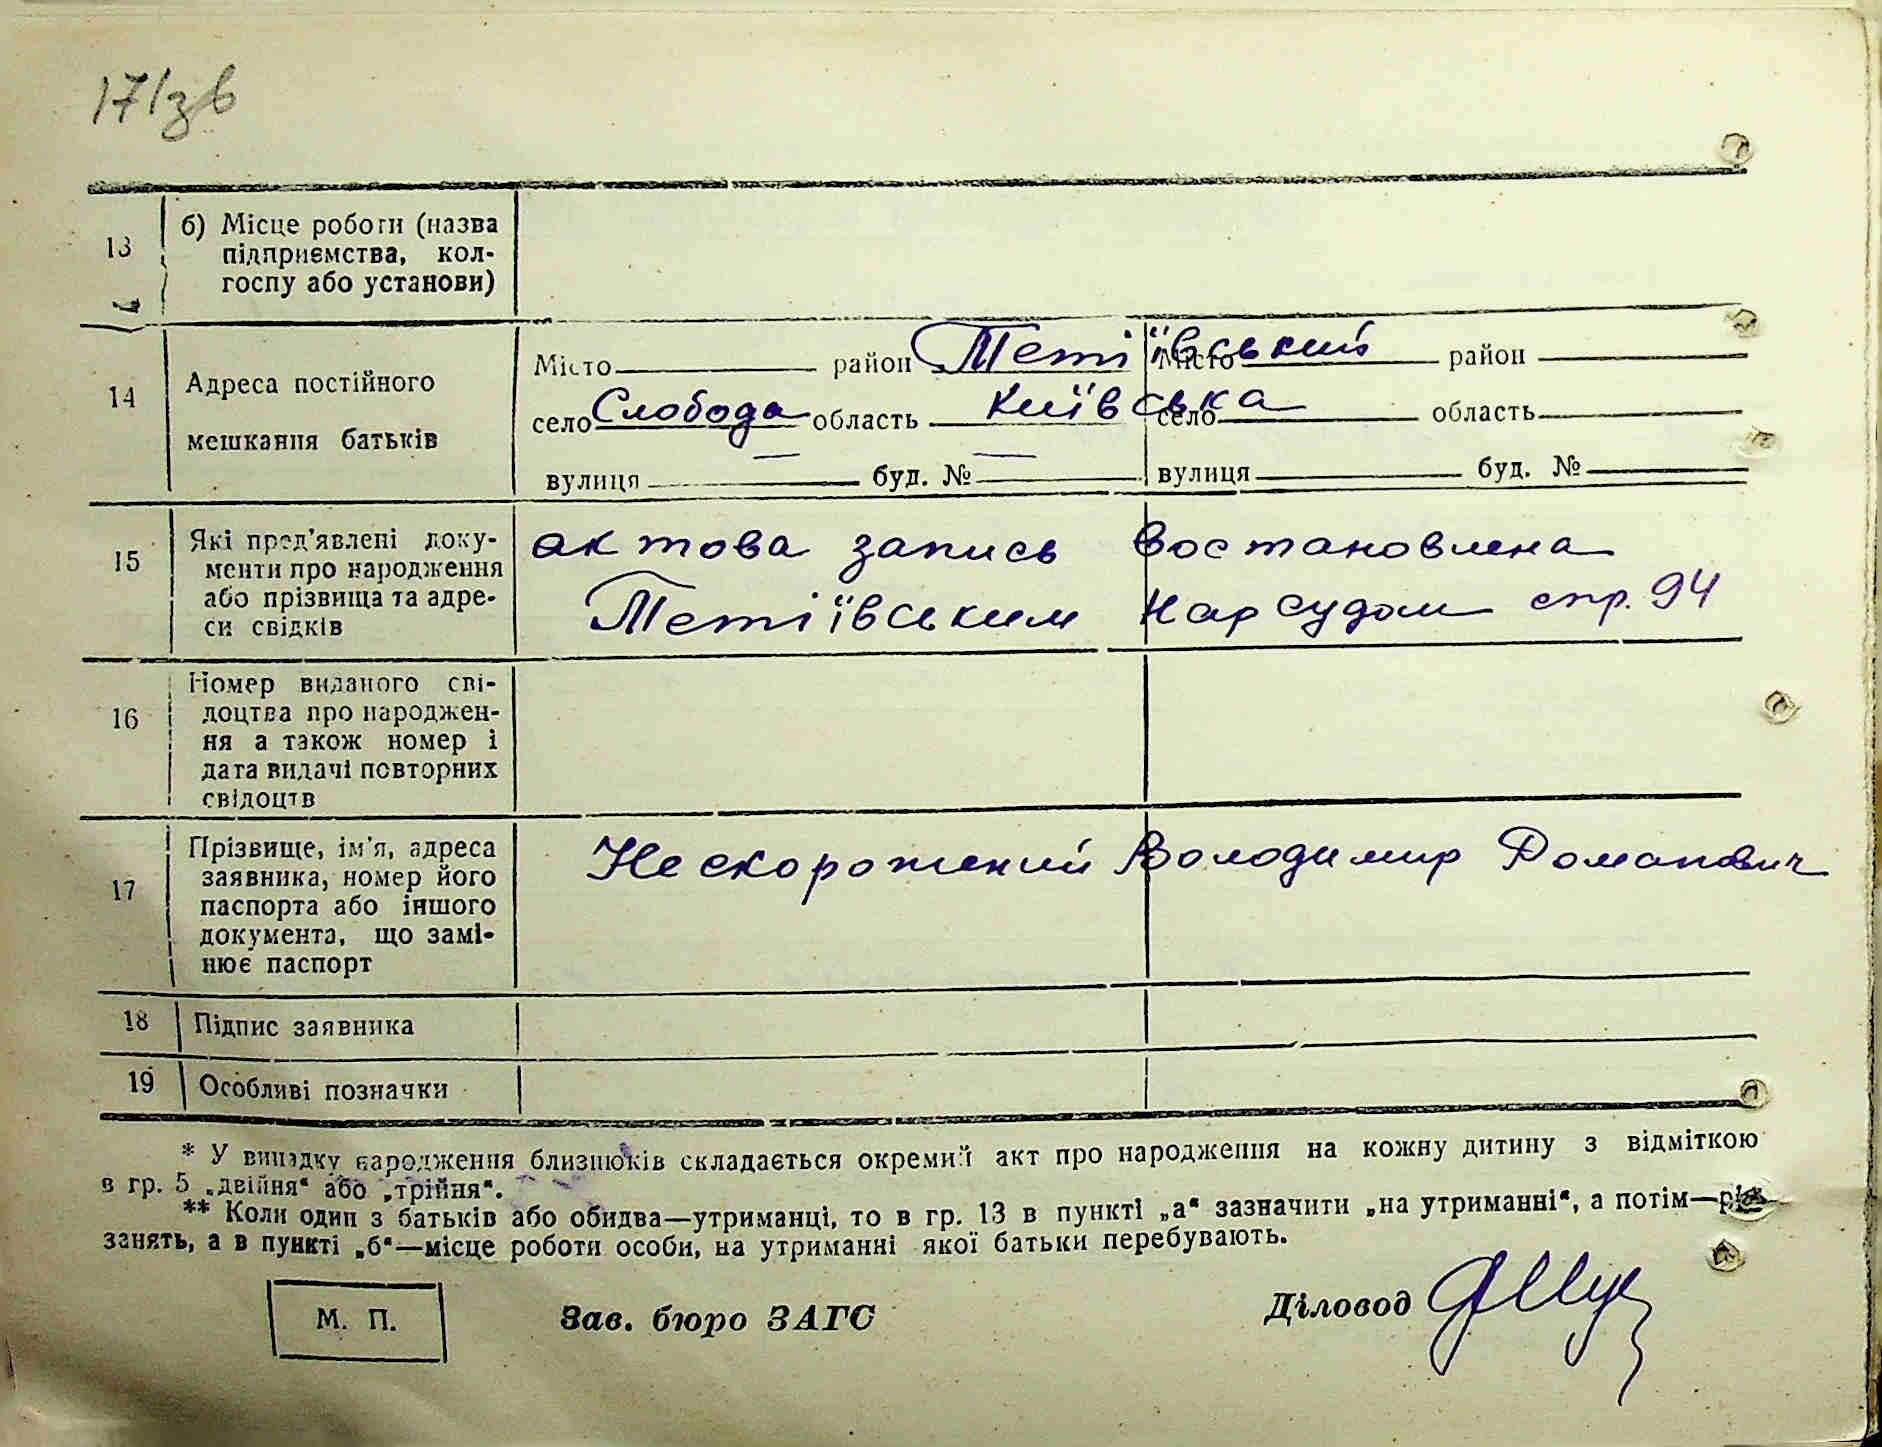 171зв
13 б) Місце роботи (назва
підприємства, кол-
госпу або установи)
14 Адреса постійного
мешкання батьків
Місто район Тетіївський Місто район
село Слобода область Київська село область
вулиця — буд. № — вулиця буд. №
15 Які пред'явлені доку-
менти про народження
або прізвища та адре-
си свідків
актова запись востановлена
Тетіївським Нарсудом спр. 94
16 Номер виданого сві-
доцтва про народжен-
ня а також номер і
дата видачі повторних
свідоцтв
17 Прізвище, ім'я, адреса
заявника, номер його
паспорта або іншого
документа, що замі-
нює паспорт
Нескорожений Володимир Романович
18 Підпис заявника
19 Особливі позначки
* У випадку народження близнюків складається окремий акт про народження на кожну дитину з відміткою
в гр. 5 „двійня“ або „трійня“.
** Коли один з батьків або обидва—утриманці, то в гр. 13 в пункті „а“ зазначити „на утриманні“, а потім—рід
занять, а в пункті „б“—місце роботи особи, на утриманні якої батьки перебувають.
М. П. Зав. бюро ЗАГС Діловод